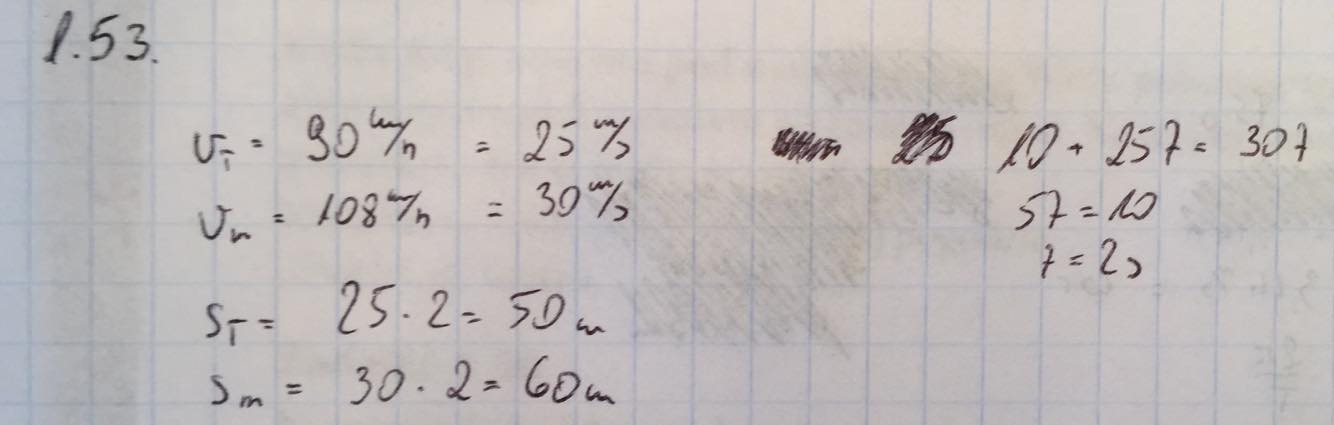 1.53.
v_T = 90 km/h = 25 m/s
v_m = 108 km/h = 30 m/s
s_T = 25 · 2 = 50 m
s_m = 30 · 2 = 60 m
10 + 25t = 30t
5t = 10
t = 2s